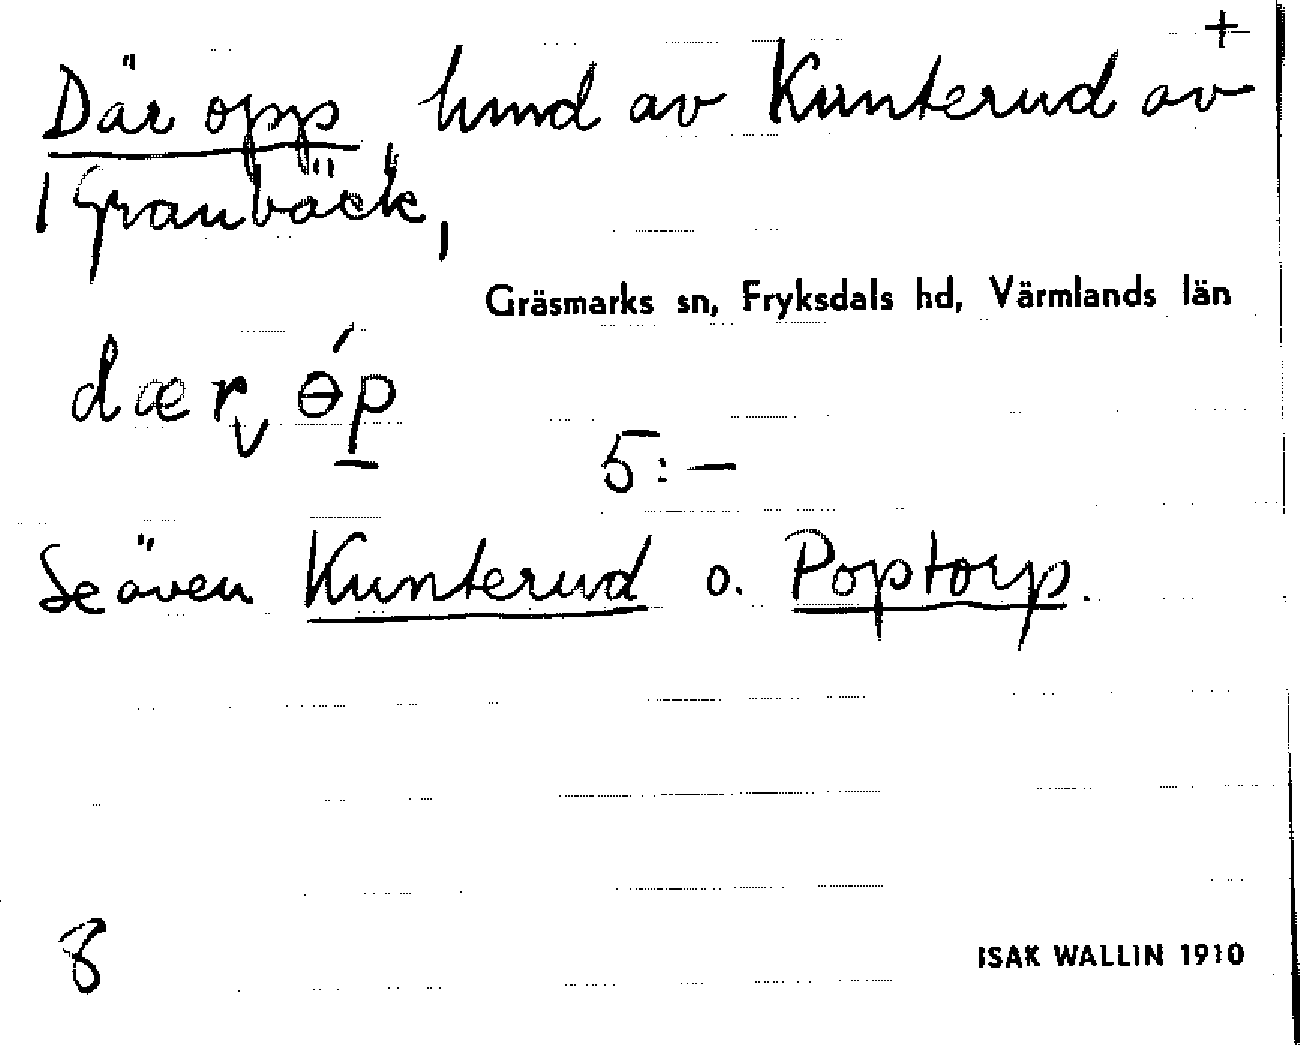 +
Där opp hmd av Kunterud av
1 Granbäck,
Gräsmarks sn, Fryksdals hd, Värmlands län
dær ɵ́p
5:-
Se även Kunterud o. Poptorp.
8
ISAK WALLIN 1910